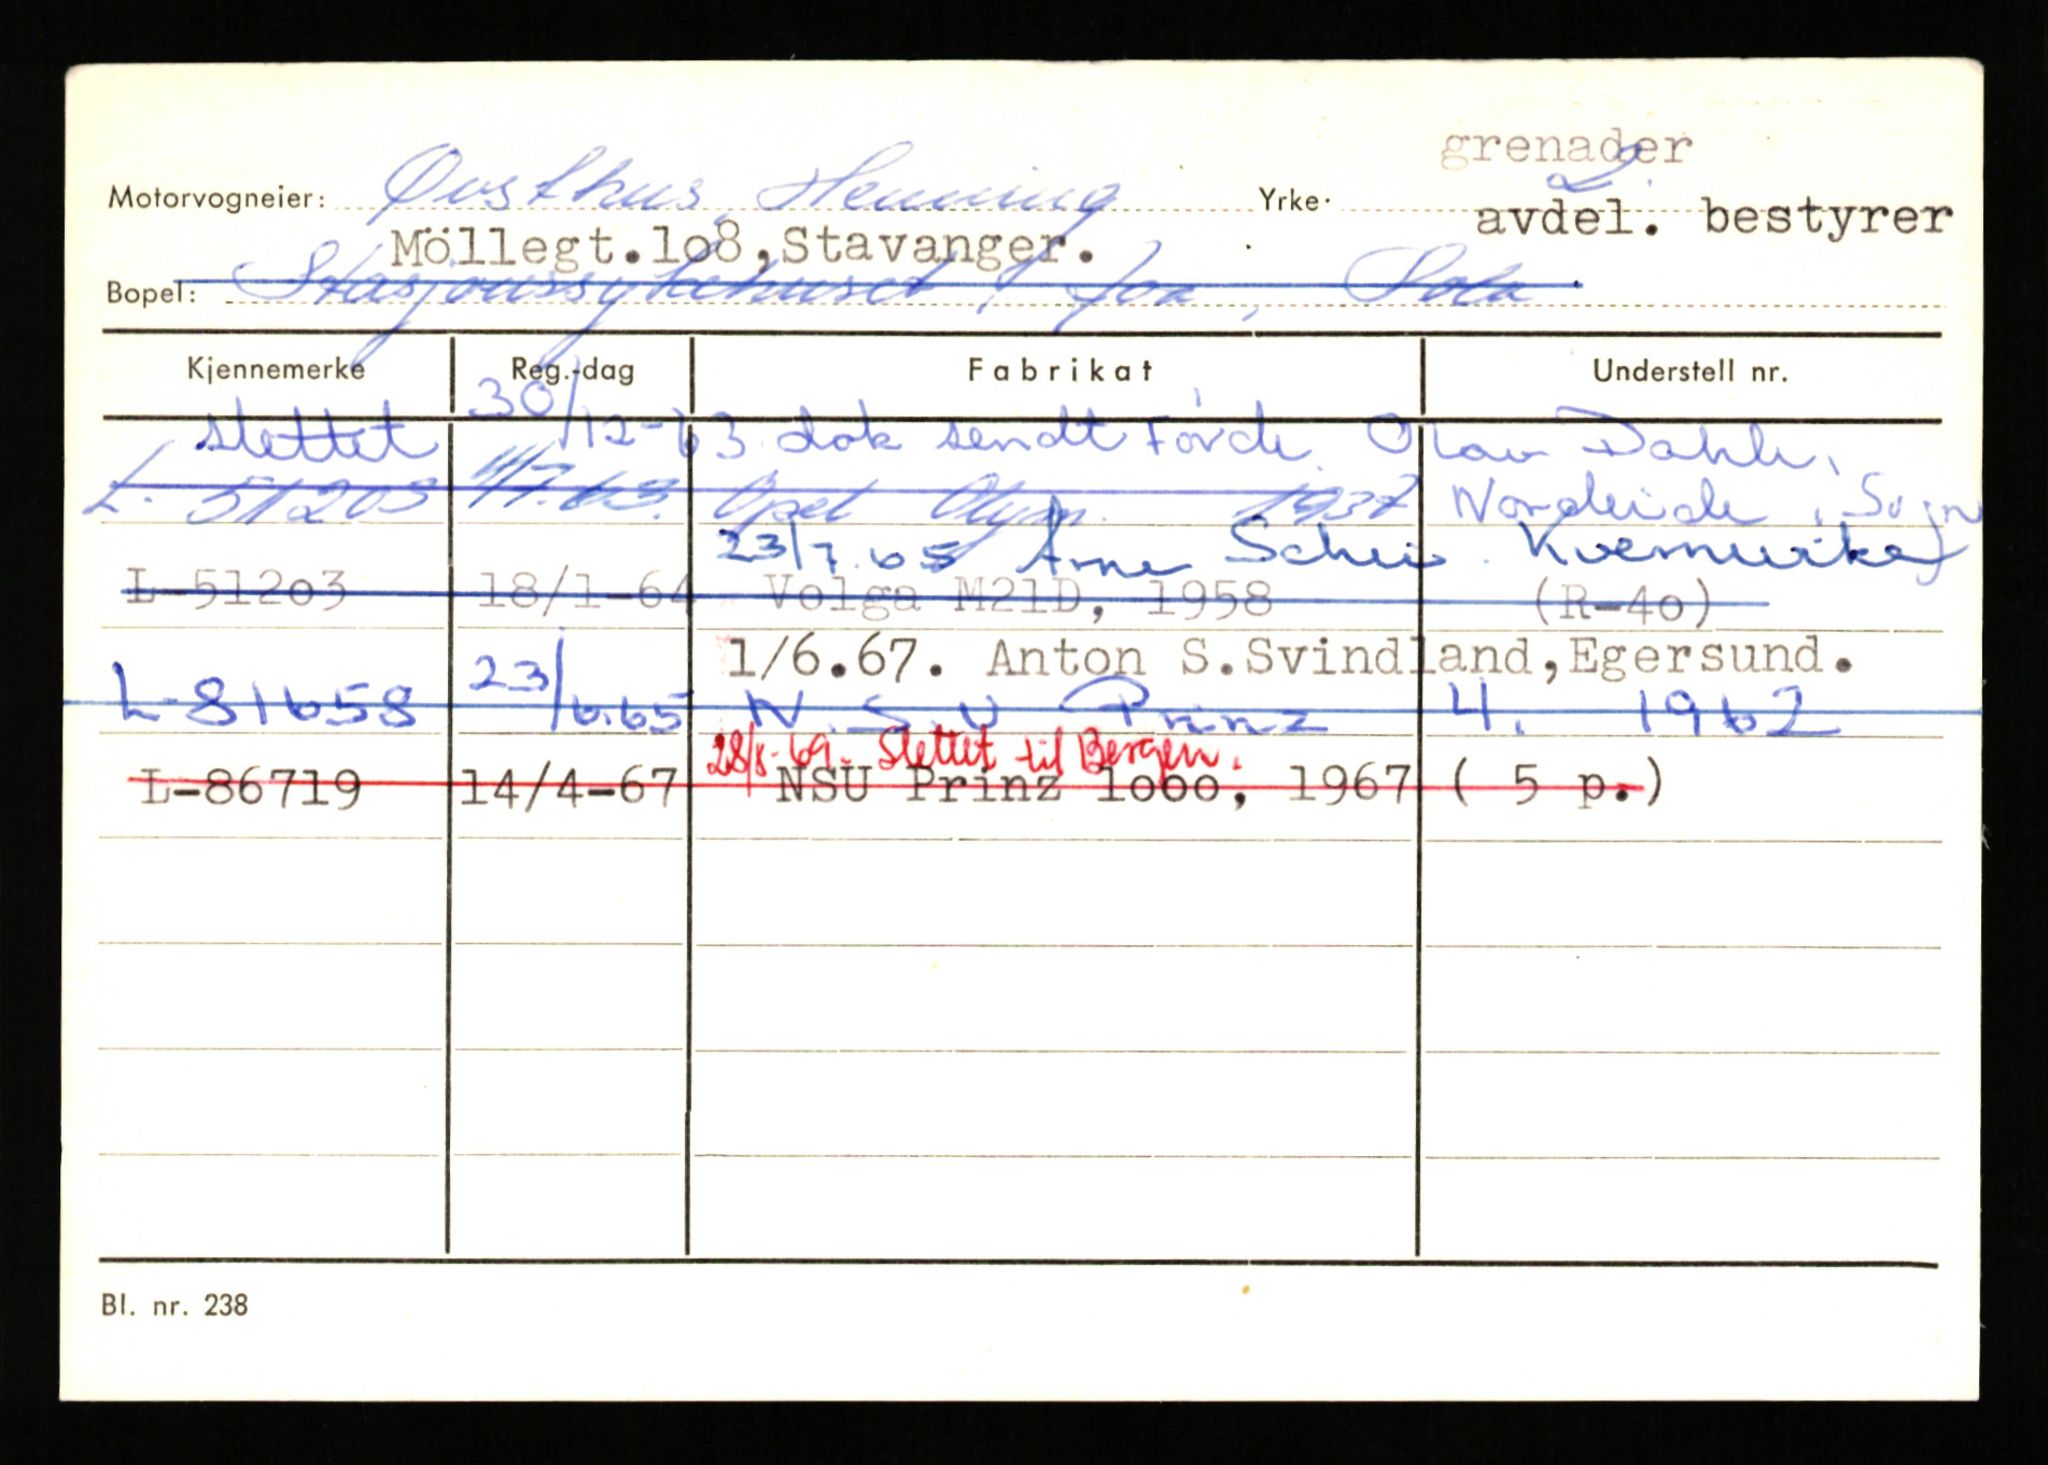 grenader
Motorvogneier: Øvsthus, Henning Yrke. 2.
avdel. bestyrer
Möllegt.lo8,Stavanger.
Bopel: Stasjonssykehuset, Sola
Kjennemerke Reg.-dag Fabrikat Understell nr.
slettet 30/12-63 dok sendt Førde. Olav Dahle,
L. 51203 11/7.63. Opel Olym. 1937 Nordeide, Sogn
23/7.65 Arne Schei. Kvernevik
L-512o3 18/1-64 Volga M21D, 1958 (R-4o)
1/6.67. Anton S.Svindland,Egersund.
L-81658 23/6.65 N.S.U Prinz 4. 1962
28/8-69. Slettet til Bergen.
L-86719 14/4-67 NSU Prinz looo, 1967 ( 5 p.)
Bl. nr. 238